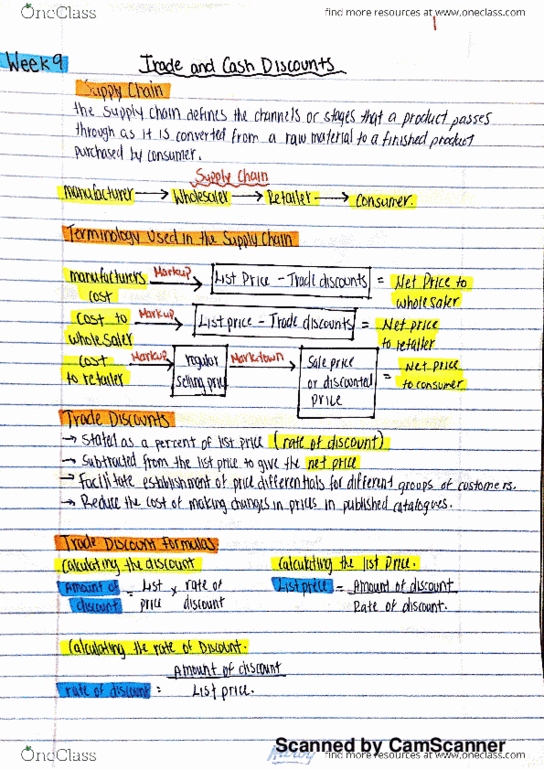 OneClass
find more resources at www.oneclass.com
1
Week 9
Trade and Cash Discounts
Supply Chain
the supply chain defines the channels or stages that a product passes
through as it is converted from a raw material to a finished product
purchased by consumer.
Supply Chain
manufacturer → Wholesaler → Retailer → consumer.
Terminology Used in the Supply Chain
manufacturers cost Markup → List Price - Trade discounts = Net Price to wholesaler
cost to wholesaler Markup → List price - Trade discounts = Net price to retailer
cost to retailer Markup → regular selling price Markdown → Sale price or discounted price = Net price to consumer
Trade Discounts
→ Stated as a percent of list price (rate of discount)
→ Subtracted from the list price to give the net price
→ Facilitate establishment of price differentials for different groups of customers.
→ Reduce the cost of making changes in prices in published catalogues.
Trade Discount Formulas.
Calculating the discount
Amount of discount = List price x rate of discount
Calculating the list Price.
List price = Amount of discount
Rate of discount.
Calculating the rate of Discount.
rate of discount = Amount of discount
List price.
Scanned by CamScanner
OneClass
find more resources at www.oneclass.com